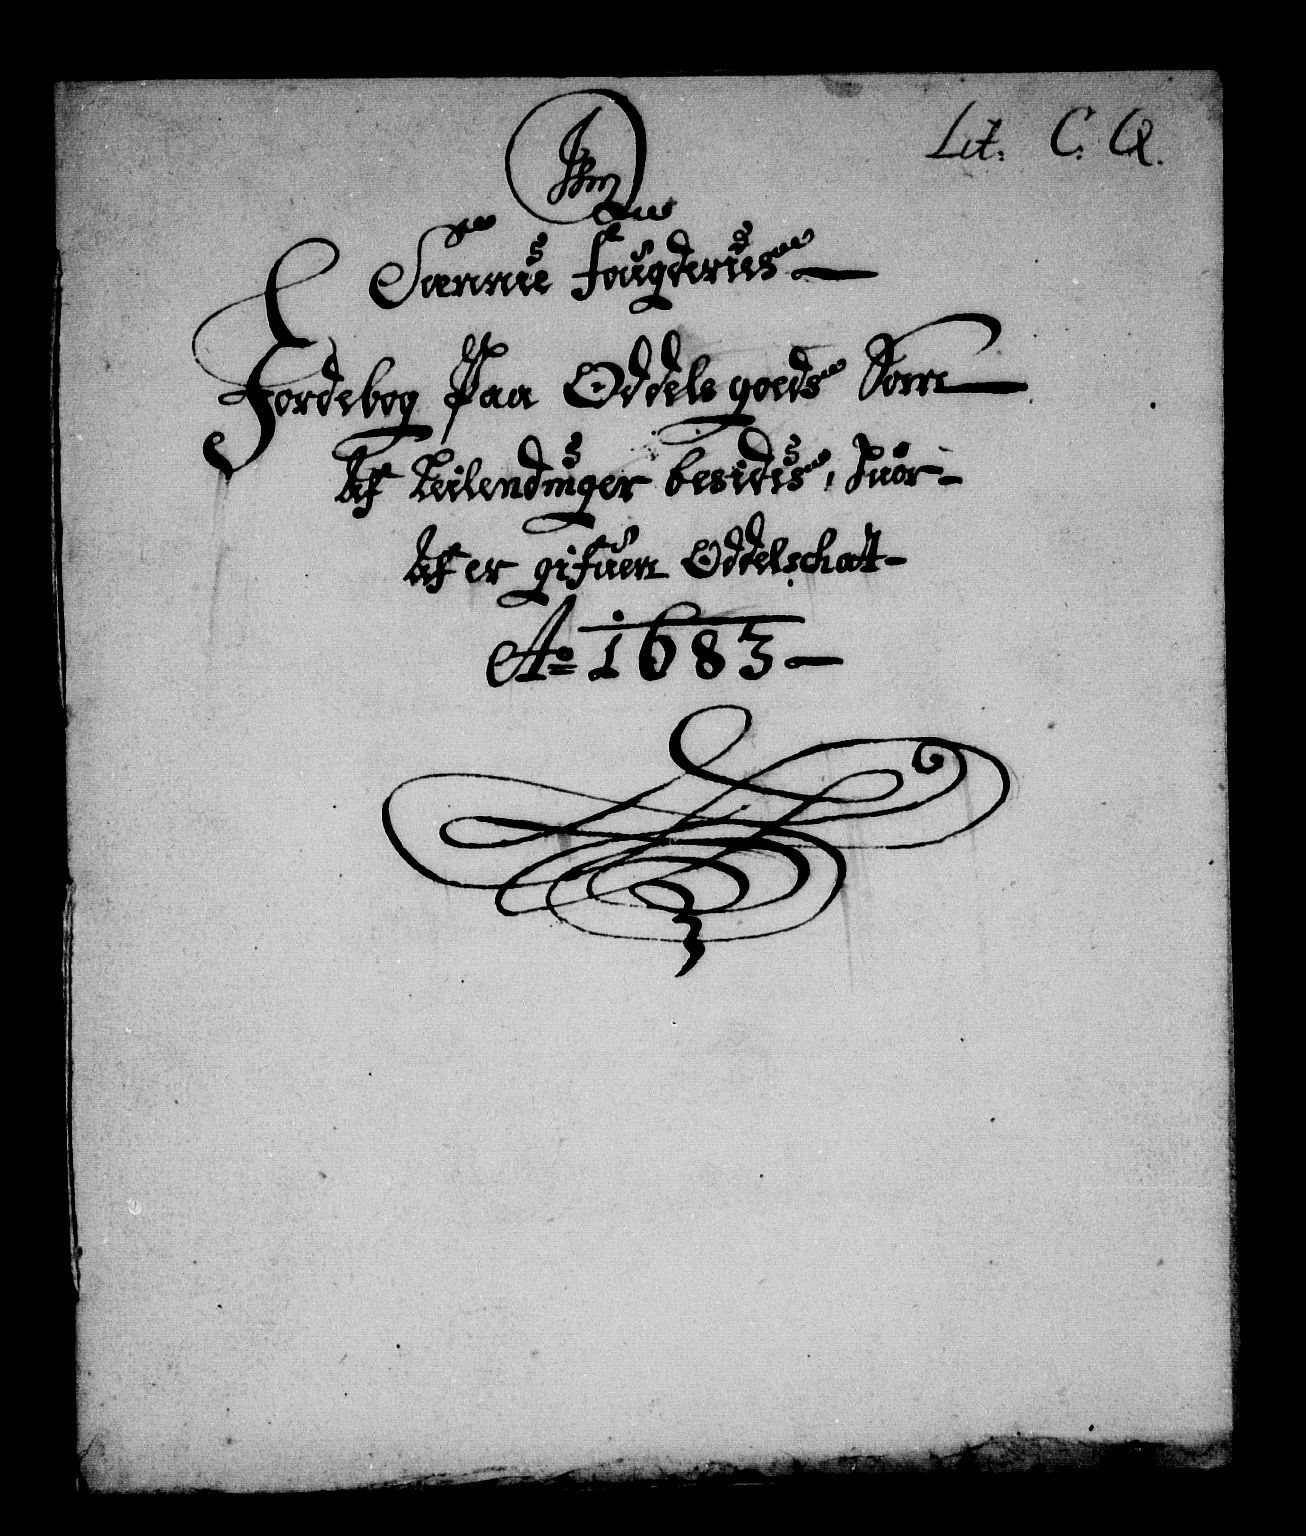 Lit. C. Q.
Sænnie fougderies
Jordebog Paa Oddels goeds Som
Af Leilendinger besidis, huor-
Af er gifuen Oddelschatt-
Ao 1683